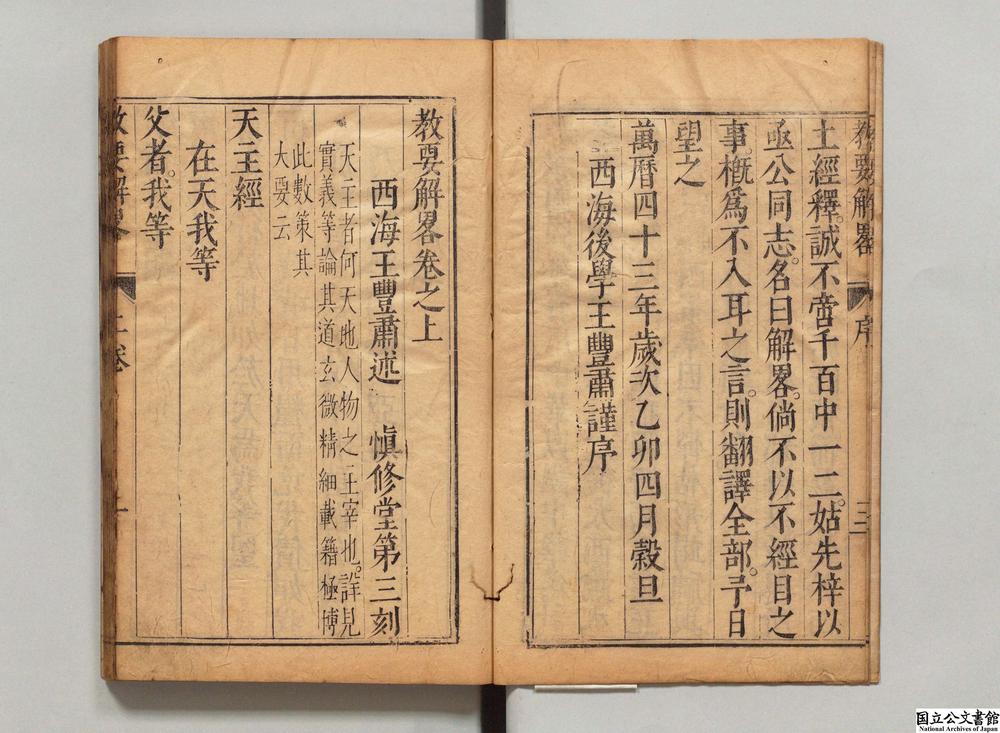 教要解畧 序 三
土經釋。誠不啻千百中一二。姑先梓以
亟公同志。名曰解畧。倘不以不經目之
事。概爲不入耳之言。則翻譯全部。予日
望之
萬曆四十三年歲次乙卯四月穀旦
西海後學王豐肅謹序
教要解畧卷之上
西海王豐肅述 慎修堂第三刻
天主者何天地人物之主宰也。詳見
實義等論其道玄微精細載籍極博
此數策其
大要云
天主經
在天我等
父者。我等
教要解畧 上卷 一
国立公文書館
National Archives of Japan